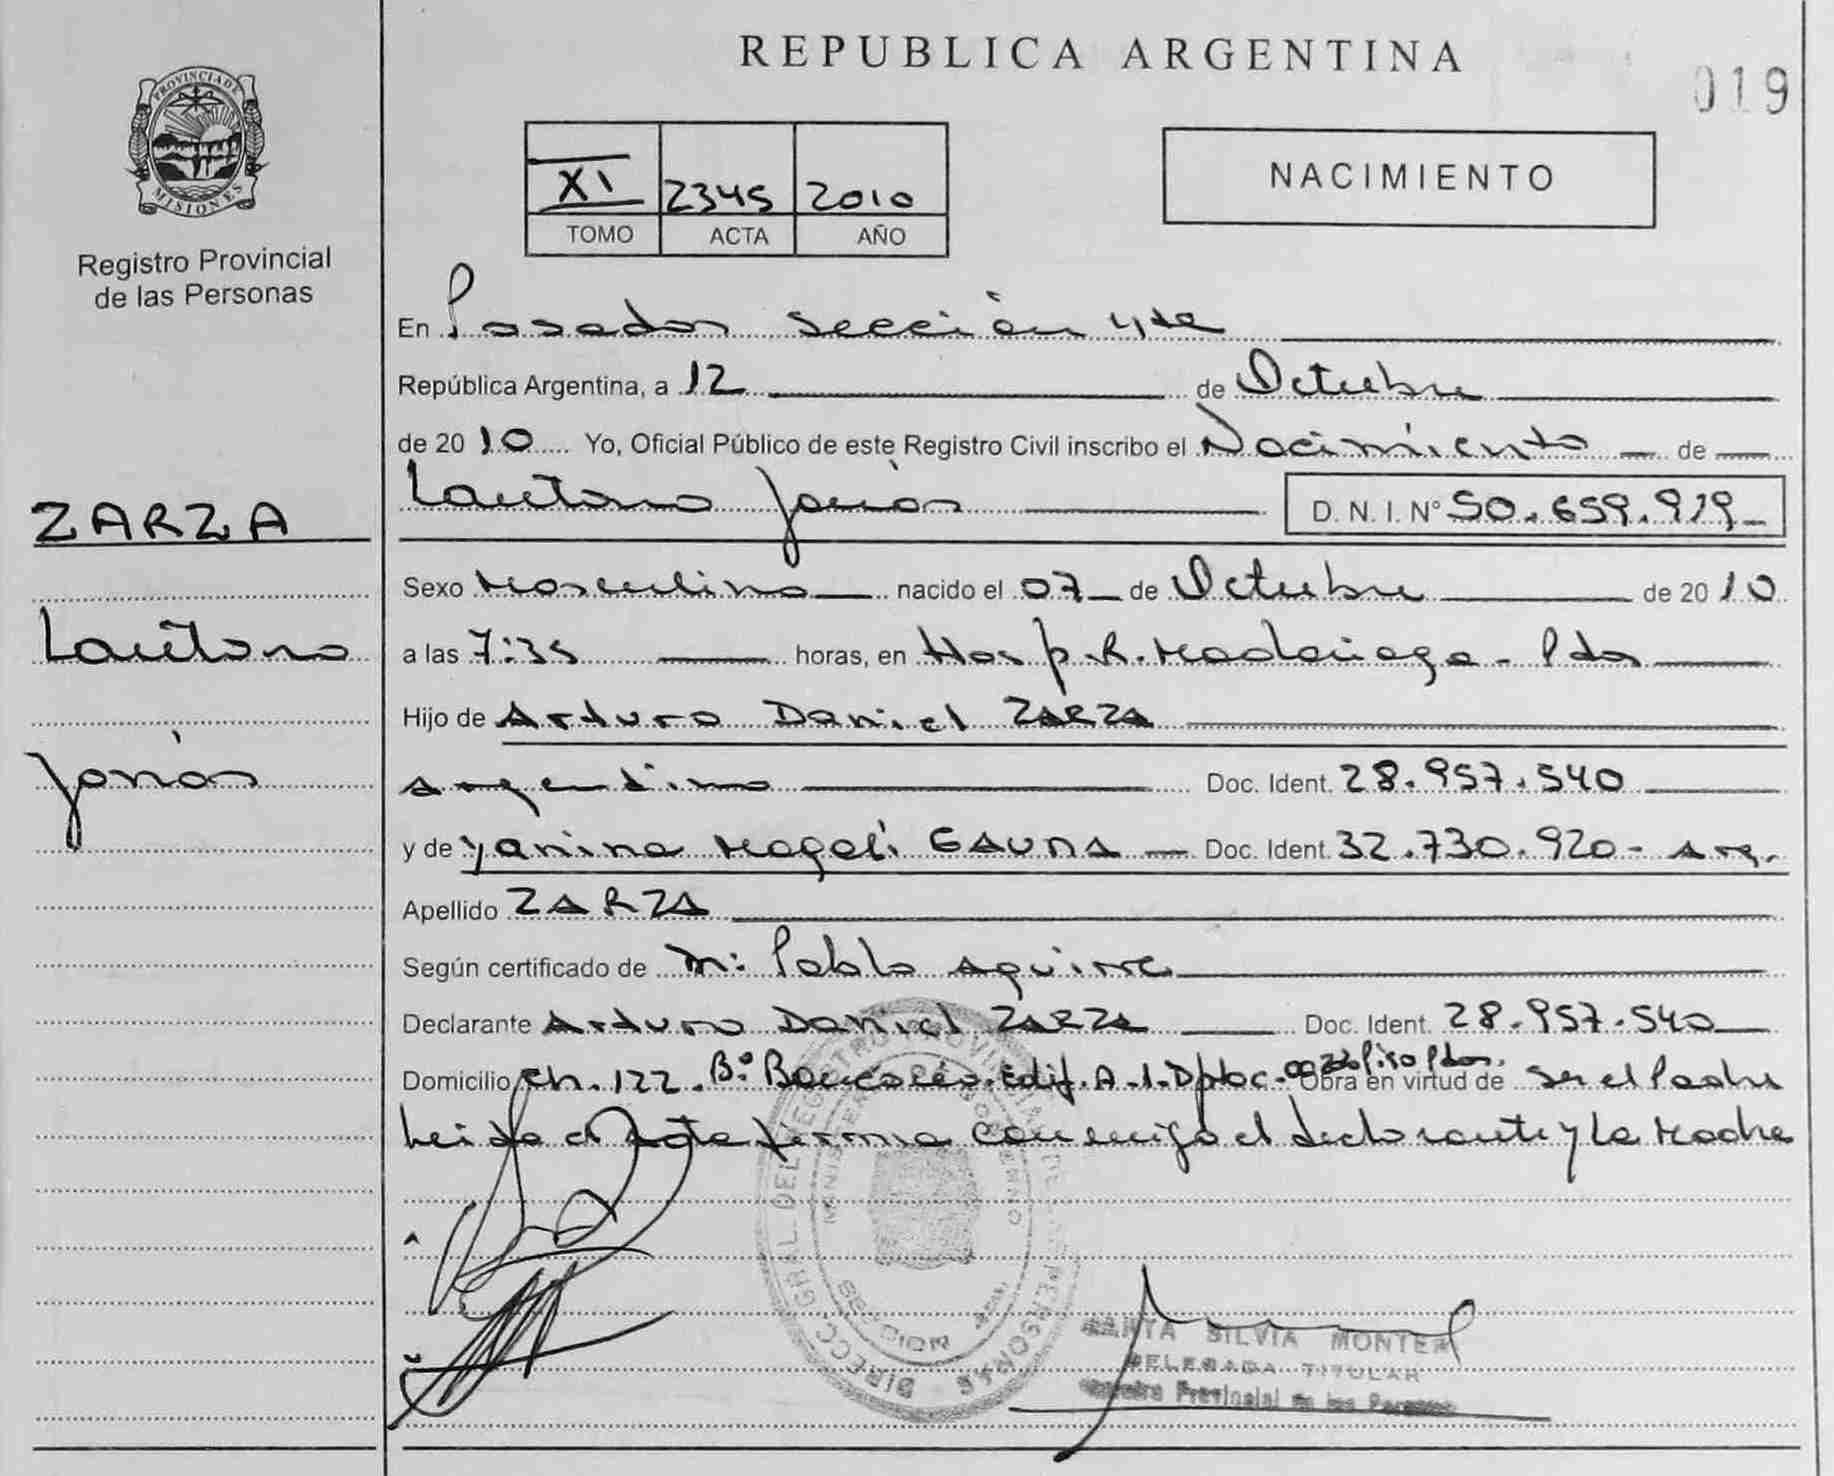 REPUBLICA ARGENTINA
019
PROVINCIA DE MISIONES
Registro Provincial
de las Personas
XI 2345 2010
TOMO ACTA AÑO
NACIMIENTO
En Posadas sección 4ta
República Argentina, a 12 de Octubre
de 2010 Yo, Oficial Público de este Registro Civil inscribo el Nacimiento de
ZARZA
Lautaro Jonás D.N.I. N° 50.659.919
Sexo Masculino nacido el 07 de Octubre de 2010
Lautaro
a las 7:35 horas, en Hosp. R. Madariaga - Pdas
Hijo de Arturo Daniel ZARZA
Jonás
argentino Doc. Ident. 28.957.540
y de Yanina Magalí GAUNA Doc. Ident. 32.730.920 - Arg.
Apellido ZARZA
Según certificado de M: Pablo Aguirre
Declarante Arturo Daniel ZARZA Doc. Ident. 28.957.540
Domicilio Ch. 122. B° Edif. A-1-Dpto C- Piso Pdas. Obra en virtud de ser el Padre
Leída el Acta firma conmigo el declarante y la Madre
SILVIA MONTE
DELEGADA TITULAR
Provincial de las Personas